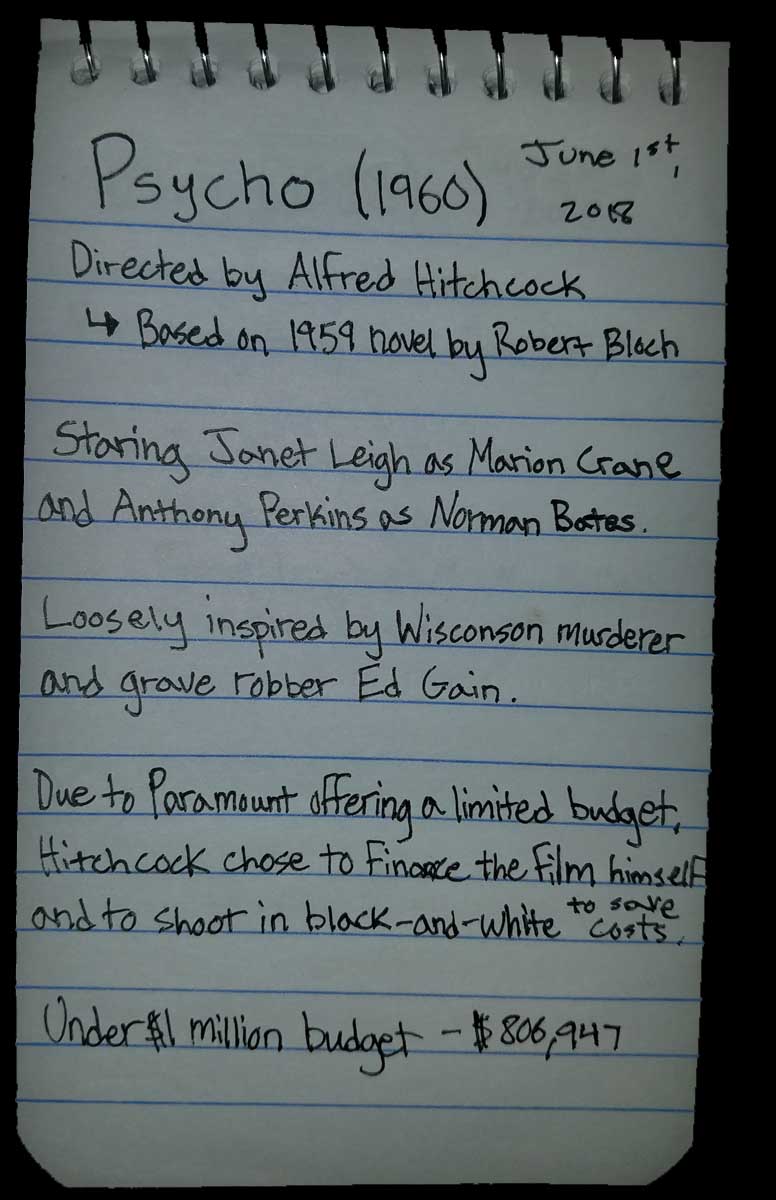 Psycho (1960) June 1st,
2018
Directed by Alfred Hitchcock
↳ Based on 1959 novel by Robert Bloch
Staring Janet Leigh as Marion Crane
and Anthony Perkins as Norman Bates.
Loosely inspired by Wisconson murderer
and grave robber Ed Gain.
Due to Paramount offering a limited budget,
Hitchcock chose to finance the film himself
and to shoot in black-and-white to save
costs.
Under $1 million budget - $806,947